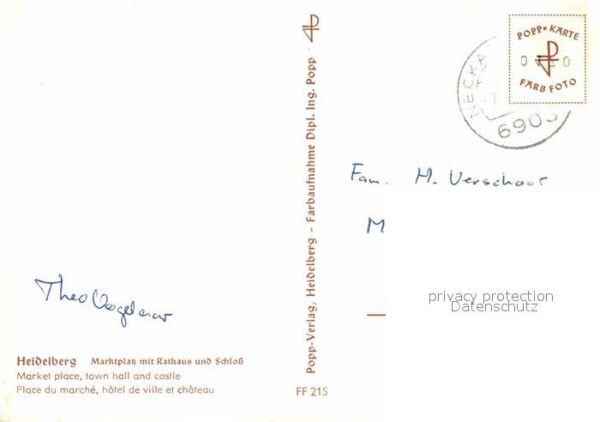 POPP★KARTE
0 0
FARB FOTO
NECKA
6903
Popp-Verlag, Heidelberg - Farbaufnahme Dipl. Ing. Popp
Fam. M. Verschoor
M
privacy protection
Datenschutz
Theo Vogelaar
Heidelberg Marktplatz mit Rathaus und Schloß
Market place, town hall and castle
Place du marché, hôtel de ville et château
FF 215